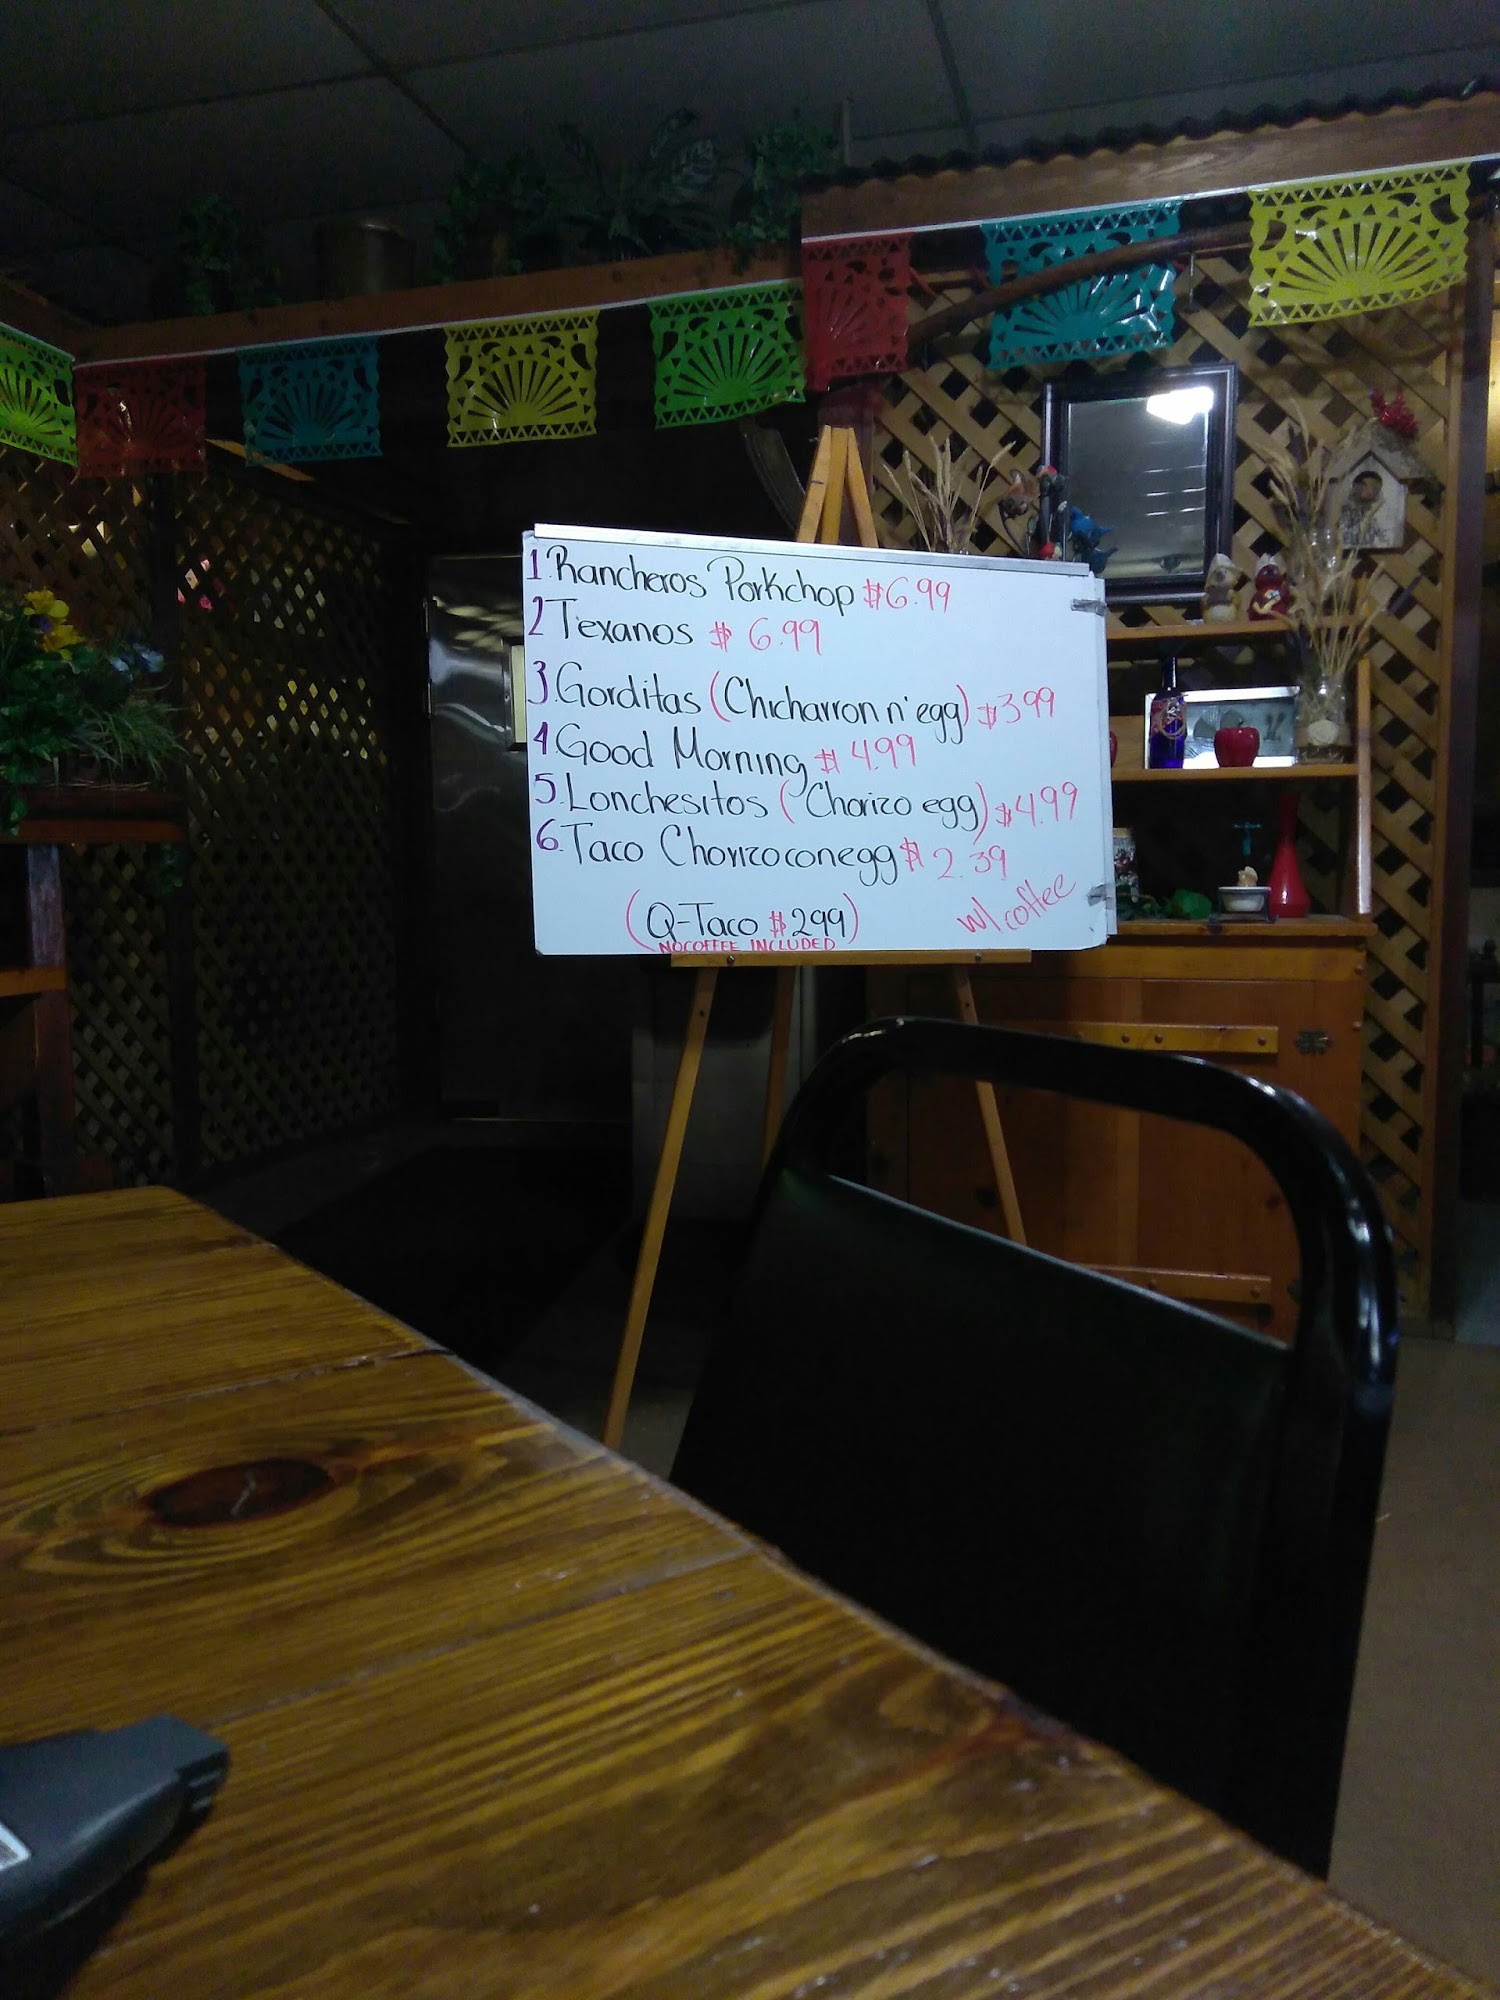 1. Rancheros Porkchop $6.99
2 Texanos $6.99
3. Gorditas (Chicharron n' egg) $3.99
4 Good Morning $4.99
5. Lonchesitos (Chorizo egg) $4.99
6. Taco Chorizoconegg $2.39
w/ coffee
(Q-Taco $2.99)
NO COFFEE INCLUDED
WELCOME